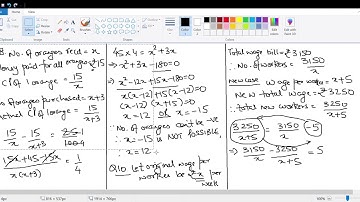 8. No of oranges recd = x
oney paid for all oranges = ₹15
C. of 1 orange = 15/x
o. of oranges purchased = x+3
ctual C. of 1 orange = 15/x+3
15/x - 15/x+3 =
15x+45-15x/x(x+3) = 1/4
45x4 = x²+3x
⇒ x²+3x-180=0
⇒ x²-12x+15x-180=0
x(x-12)+15(x-12)=0
(x-12)(x+15)=0
x=12 or x=-15
∴ No. of oranges can't be -ve
∴ x=-15 is NOT possible
∴ x=12
Q10 Let original wage per
worker be ₹x per
week
Total wage bill = ₹3150
∴ No. of workers = 3150/x
New case wage per = x+5
New total wage = ₹3250
∴ total new workers = 3250/x+5
3250/x+5 = 3150/x - 5
⇒ 3150/x - 3250/x+5 = 5